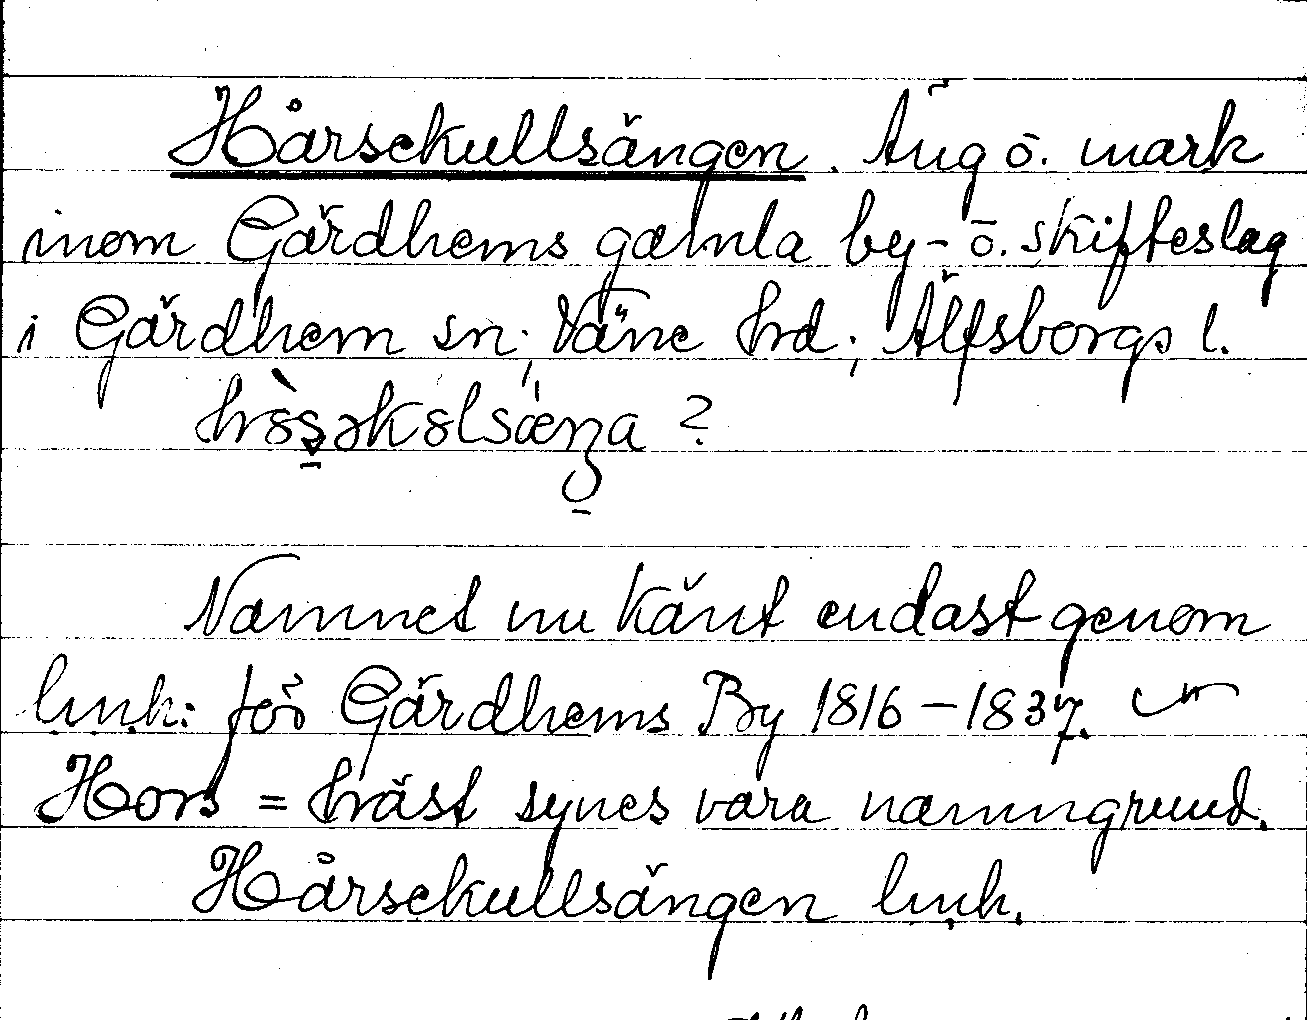 Hårsekullsängen. Äng o. mark
inom Gärdhems gamla by- o. skifteslag
i Gärdhem sn; Väne hrd; Älfsborgs l.
Namnet nu känt endast genom
lmh: för Gärdhems By 1816–1837.
Hors = häst synes vara namngrund.
Hårsekullsängen lmh.